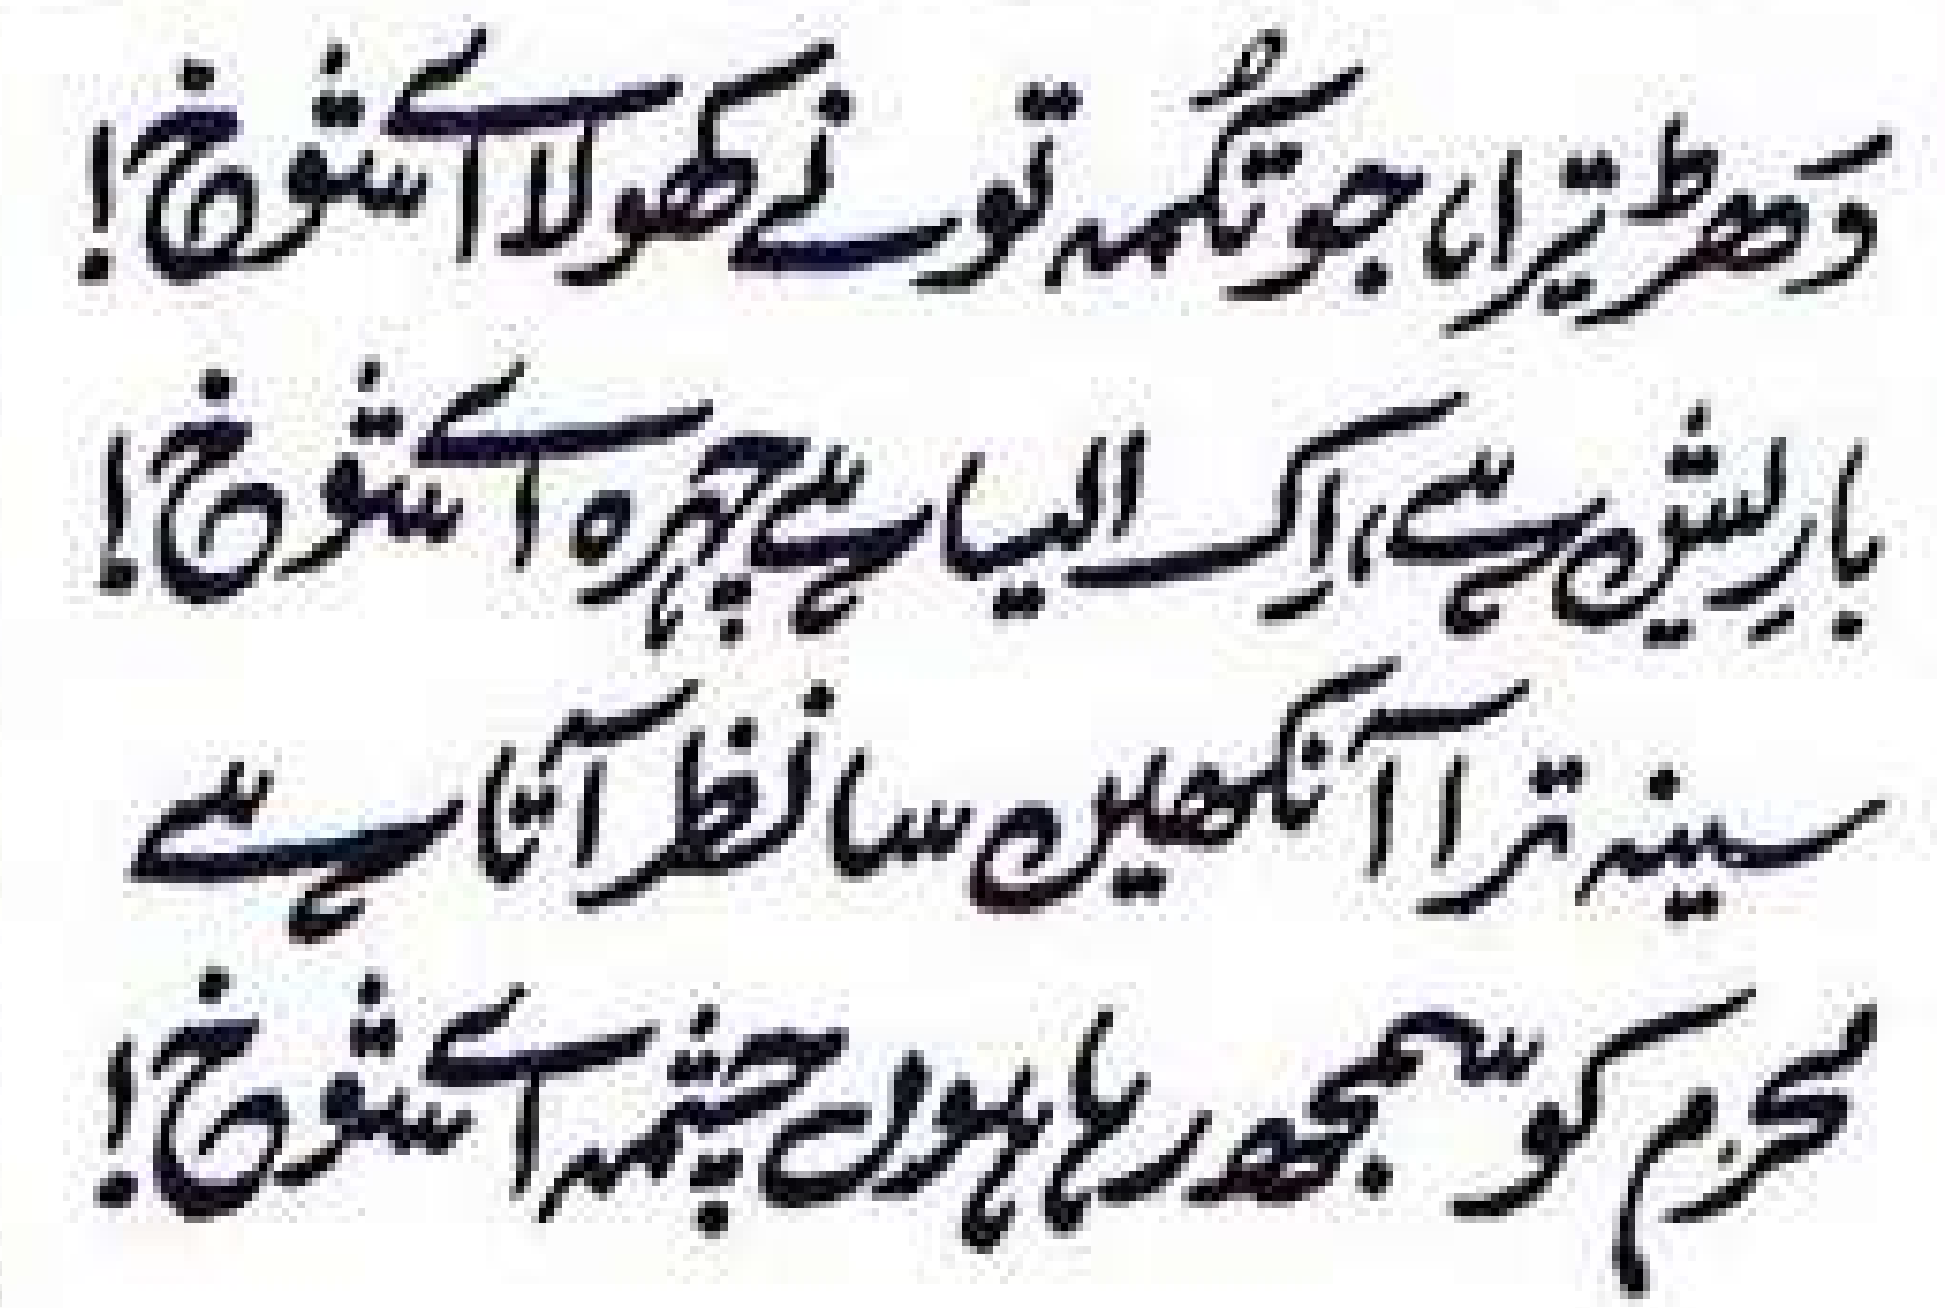 دھڑ تیرا، جو تُکمہ تو نے کھولا اے شوخ!
بارِیشیں ہے، اِک ایسا ہے چہرہ اے شوخ!
سینہ ترا آنکھیں سا نظر آتا ہے
کو سمجھ رہا ہوں چشمہ اے شوخ!